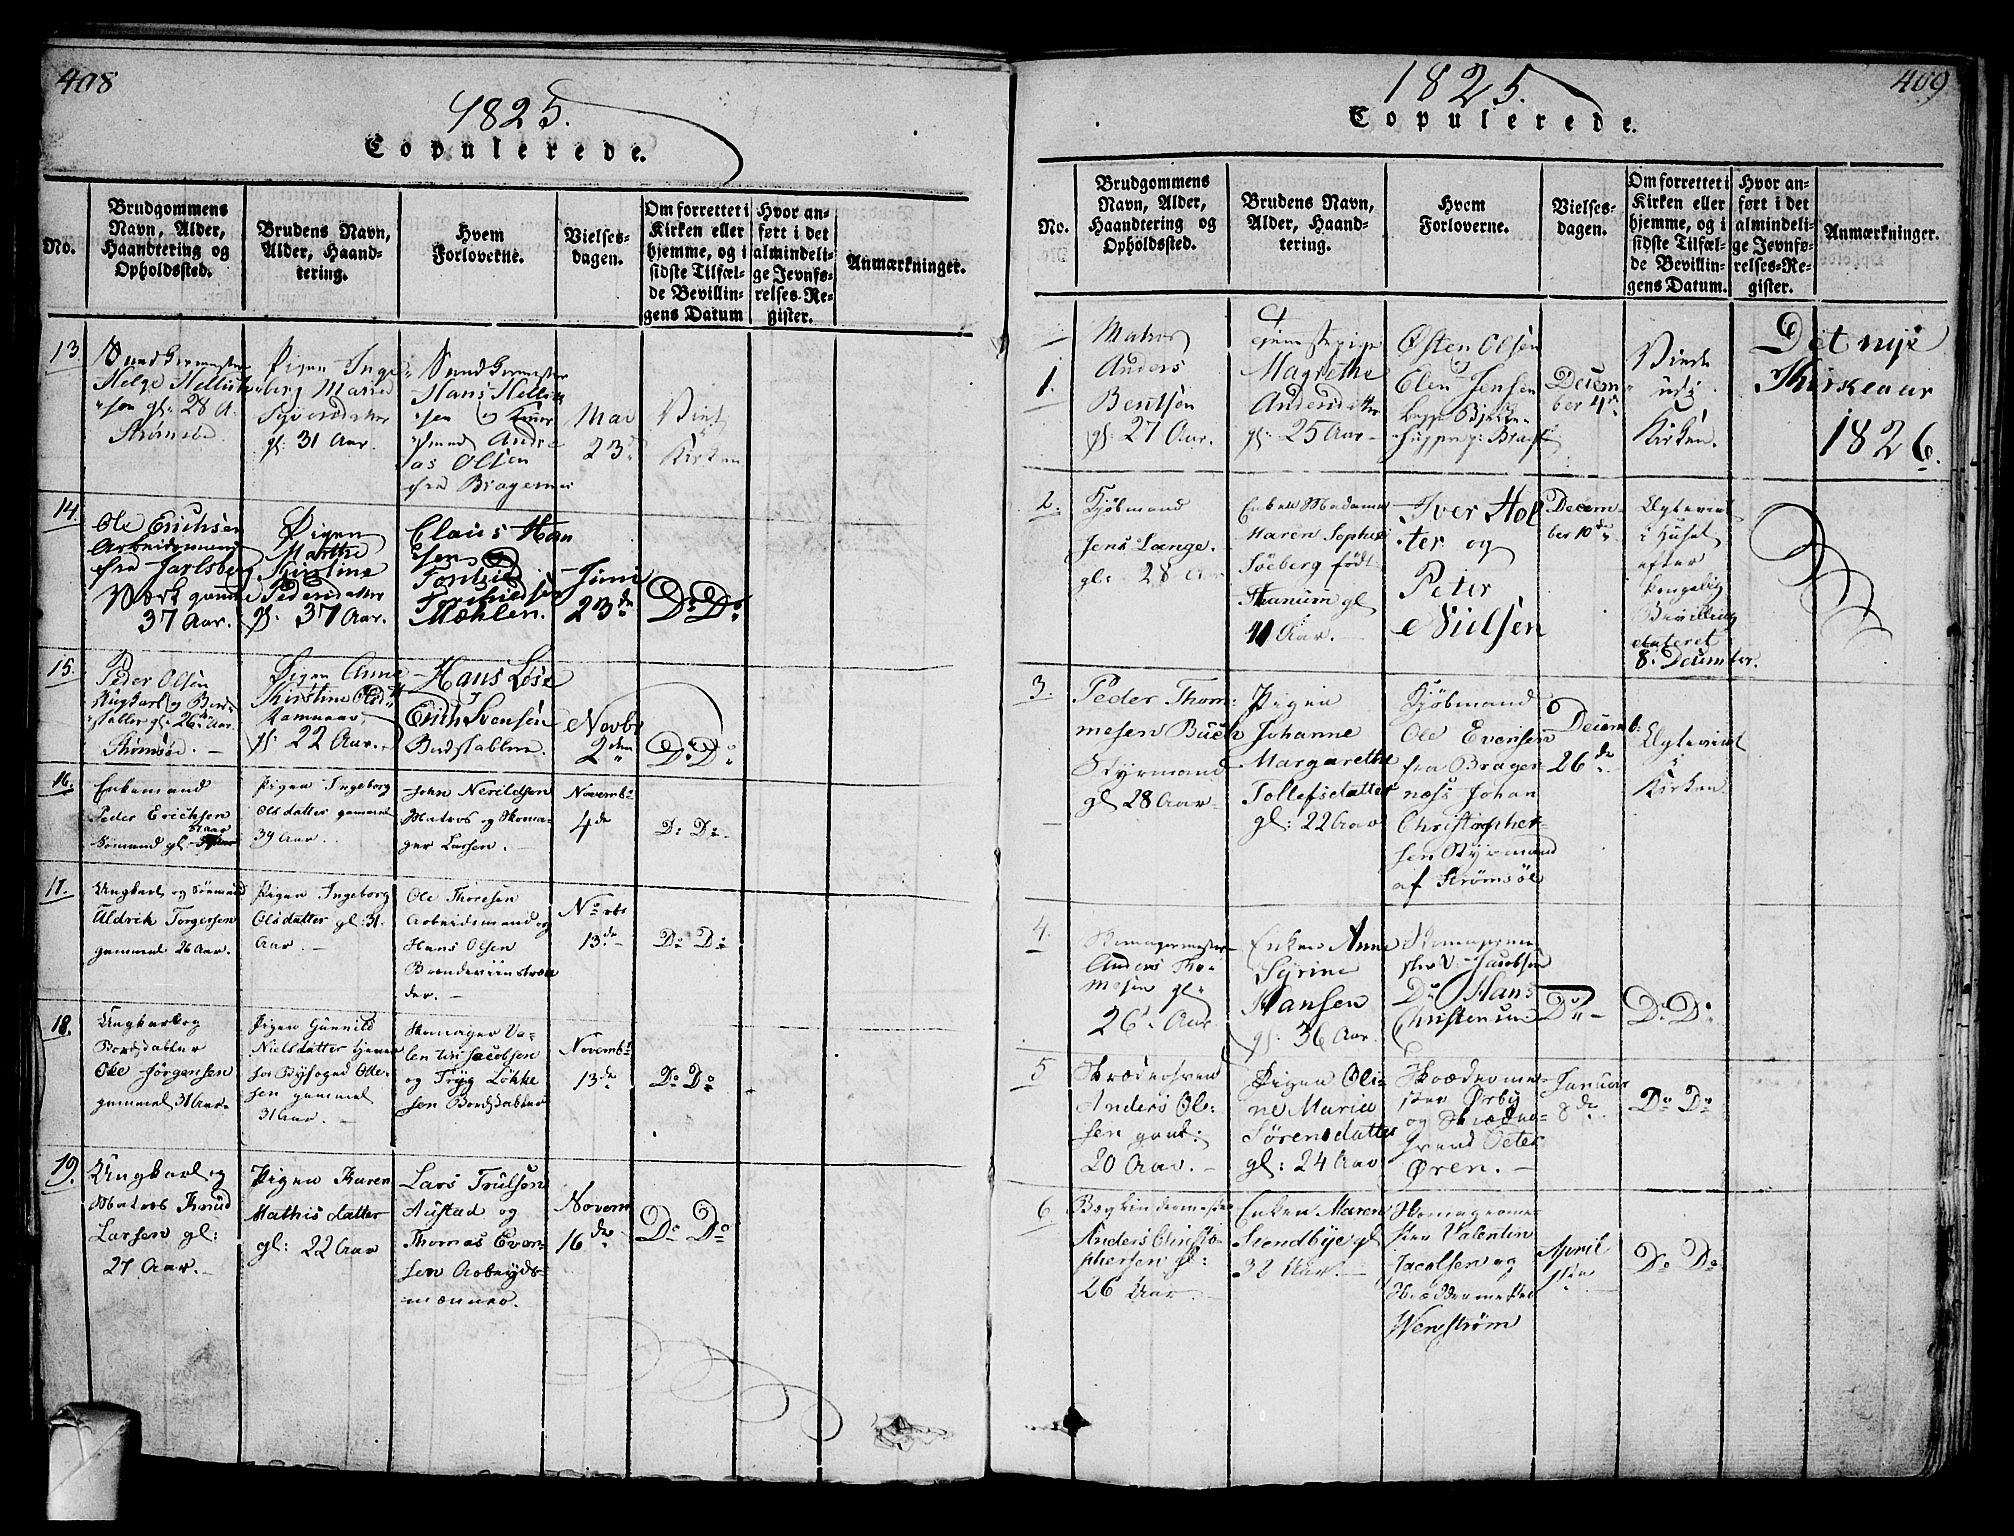 408
1825.
Copulerede.
No.
Brudgommens
Navn, Alder,
Haandtering og
Opholdssted.
Brudens Navn,
Alder, Haand-
tering.
Hvem
Forloverne.
Vielses-
dagen.
Om forrettet i
Kirken eller
hjemme, og i
sidste Tilfæl-
de Bevillin-
gens Datum
Hvor an-
ført i det
almindeli-
ge Jevnfø-
relses-Re-
gister.
Anmærkninger.
13.
Helge Hellich
sen gl: 28 A
Strømsöe.
Pigen Inge
berg Marie
Syversdatter
gl: 31 Aar.
Hans Hellich
sen og
Andre
as Olsen
fra Bragernes
Mai
23
Viet
i
Kirken
14.
Ole Erichsen
Arbeidsmand
fra Jarlsberg
Værk gamel
37 Aar.
Pigen
Marthe
Kirstine
Pedersdatter
gl: 37 Aar.
Claus Han
sen og
Torkildsen
Mæhlen.
Juni
23de
Do Do
15.
Peder Olsen
Ungkarl og Bord
stabler gl: 26 Aar.
Strömsöe.
Pigen Anne
Kirstine Olsd
gl: 22 Aar.
Hans Löse
Erich Svensen
Bordstablere.
Novbr
2den
Do Do
16.
Enkemand
Peder Erichsen
Sömand gl:
Pigen Ingeborg
Olsdatter gammel
39 Aar.
John Nerildsen
Matros og Skoma-
ger Larsen.
Novembr
4de
Do Do
17.
Ungkarl og Sömand
Aldrik Torgersen
gammel 26 Aar.
Pigen Ingeborg
Olsdatter gl: 31
Aar.
Ole Thoresen
Arbeidsmand og
Hans Olsen
Brændeviinsbræn
der.
Novbr
13de
Do Do
18.
Ungkarl og
Bordstabler
Ole Jörgensen
gammel 31 Aar.
Pigen Gunnild
Nielsdatter tjener
hos Byfoged Ole-
sen gammel
31 Aar.
Skomager Va-
lentin Jacobsen
og Tryg Løkke
sen Bordstabler
Novembr
13de
Do Do
19.
Ungkarl og
Matros Knud
Larsen gl:
27 Aar.
Pigen Karen
Mathisdatter
gl: 22 Aar
Lars Trulsen
Austad og
Thomas Even-
sen Arbeyds-
mænner.
Novem
16de
Do Do
409
1825.
Copulerede.
No.
Brudgommens
Navn, Alder,
Haandtering og
Opholdssted.
Brudens Navn,
Alder, Haand-
tering.
Hvem
Forloverne.
Vielses-
dagen.
Om forrettet i
Kirken eller
hjemme, og i
sidste Tilfæl-
de Bevillin-
gens Datum.
Hvor an-
ført i det
almindeli-
ge Jevnfø-
relses-Re-
gister.
Anmærkninger.
1.
Matros
Anders
Bentsen
gl: 27 Aar.
Tjenestepige
Magrethe
Andersdatter
gl: 25 Aar
Østen Olsen
Olen Jensen
Decem
ber 4de
Viede
udi
Kirken.
Det nye
Kirkeaar
1826.
2.
Kjöbmand
Jens Lange.
gl: 28 Aar
Enken Madame
Maren Sophie
Söeberg föd
Hanum gl
41 Aar.
Iver Hol
ter og
Peter
Nielsen
Decem
ber 10de
Egteviet
i Huset
efter
kongelig
Bevilling
dateret
8. December.
3.
Peder Thom-
mesen Buch
Styrmand
gl 28 Aar
Pigen
Johanne
Margarethe
Tollefsdatter
gl: 22 Aar
Kjöbmand
Ole Evensen
fra Brager-
næss Johan
Christopher-
sen Styrmand
af Strømsöe
Decemb:
26de
Egteviet
i
Kirken
4.
Skomagermester
Anders Tho-
mesen gl:
26 Aar
Enken Anne
Syrine
Hansen
gl: 36 Aar.
Skomagerme
ster V. Jacobsen
Do Hans
Christensen
Do
Do Do
5
Skrædersvend
Anders Ol-
sen gaml:
20 Aar.
Pigen Oli-
ne Maria
Sörensdatter
gl: 24 Aar
Skræderme-
ster Ørbg
og Skræder-
svend Peter
Øren.
Januar
8de
Do Do
6
Bogbindermester
Anders Christo-
phersen gl:
26 Aar
Enken Maren
Sundbye gl
32 Aar.
Skomagerme-
ster Valentin
Jacobsen og
Skreddermester
Wenström
April
Do Do